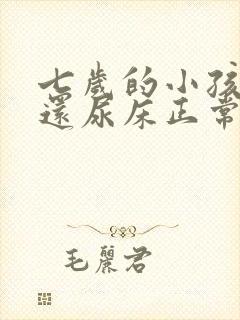 七歲的小孩
還尿床正常
毛麗君